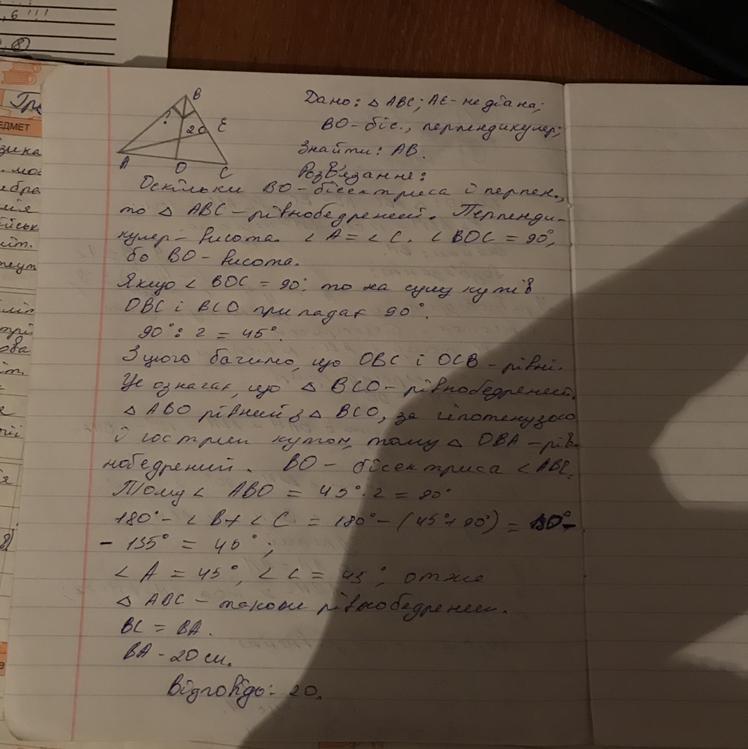 , 6 !!!
Гре
ЕДМЕТ
B
?
20
E
A
O
C
Дано: △ ABC; AE - медіана;
BO - біс., перпендикуляр;
Знайти: AB.
Розв'язання:
Оскільки BO - бісектриса і перпен.,
то △ ABC - рівнобедрений. Перпенди-
куляр - висота. ∠ A = ∠ C. ∠ BOC = 90°,
бо BO - висота.
Якщо ∠ BOC = 90° то на суму кутів
OBC і BCO припадає 90°.
90° : 2 = 45°.
З цього бачимо, що OBC і OCB - рівні.
Це означає, що △ BCO - рівнобедрений.
△ ABO рівний з △ BCO, за гіпотенузою
і гострим кутом, тому △ OBA - рів-
нобедрений. BO - бісектриса ∠ ABC.
Тому ∠ ABO = 45° · 2 = 90°
180° - ∠ B + ∠ C = 180° - (45° + 90°) = 180° -
- 135° = 45°;
∠ A = 45°, ∠ C = 45°, отже
△ ABC - також рівнобедрений.
BC = BA.
BA - 20 см.
Відповідь: 20.